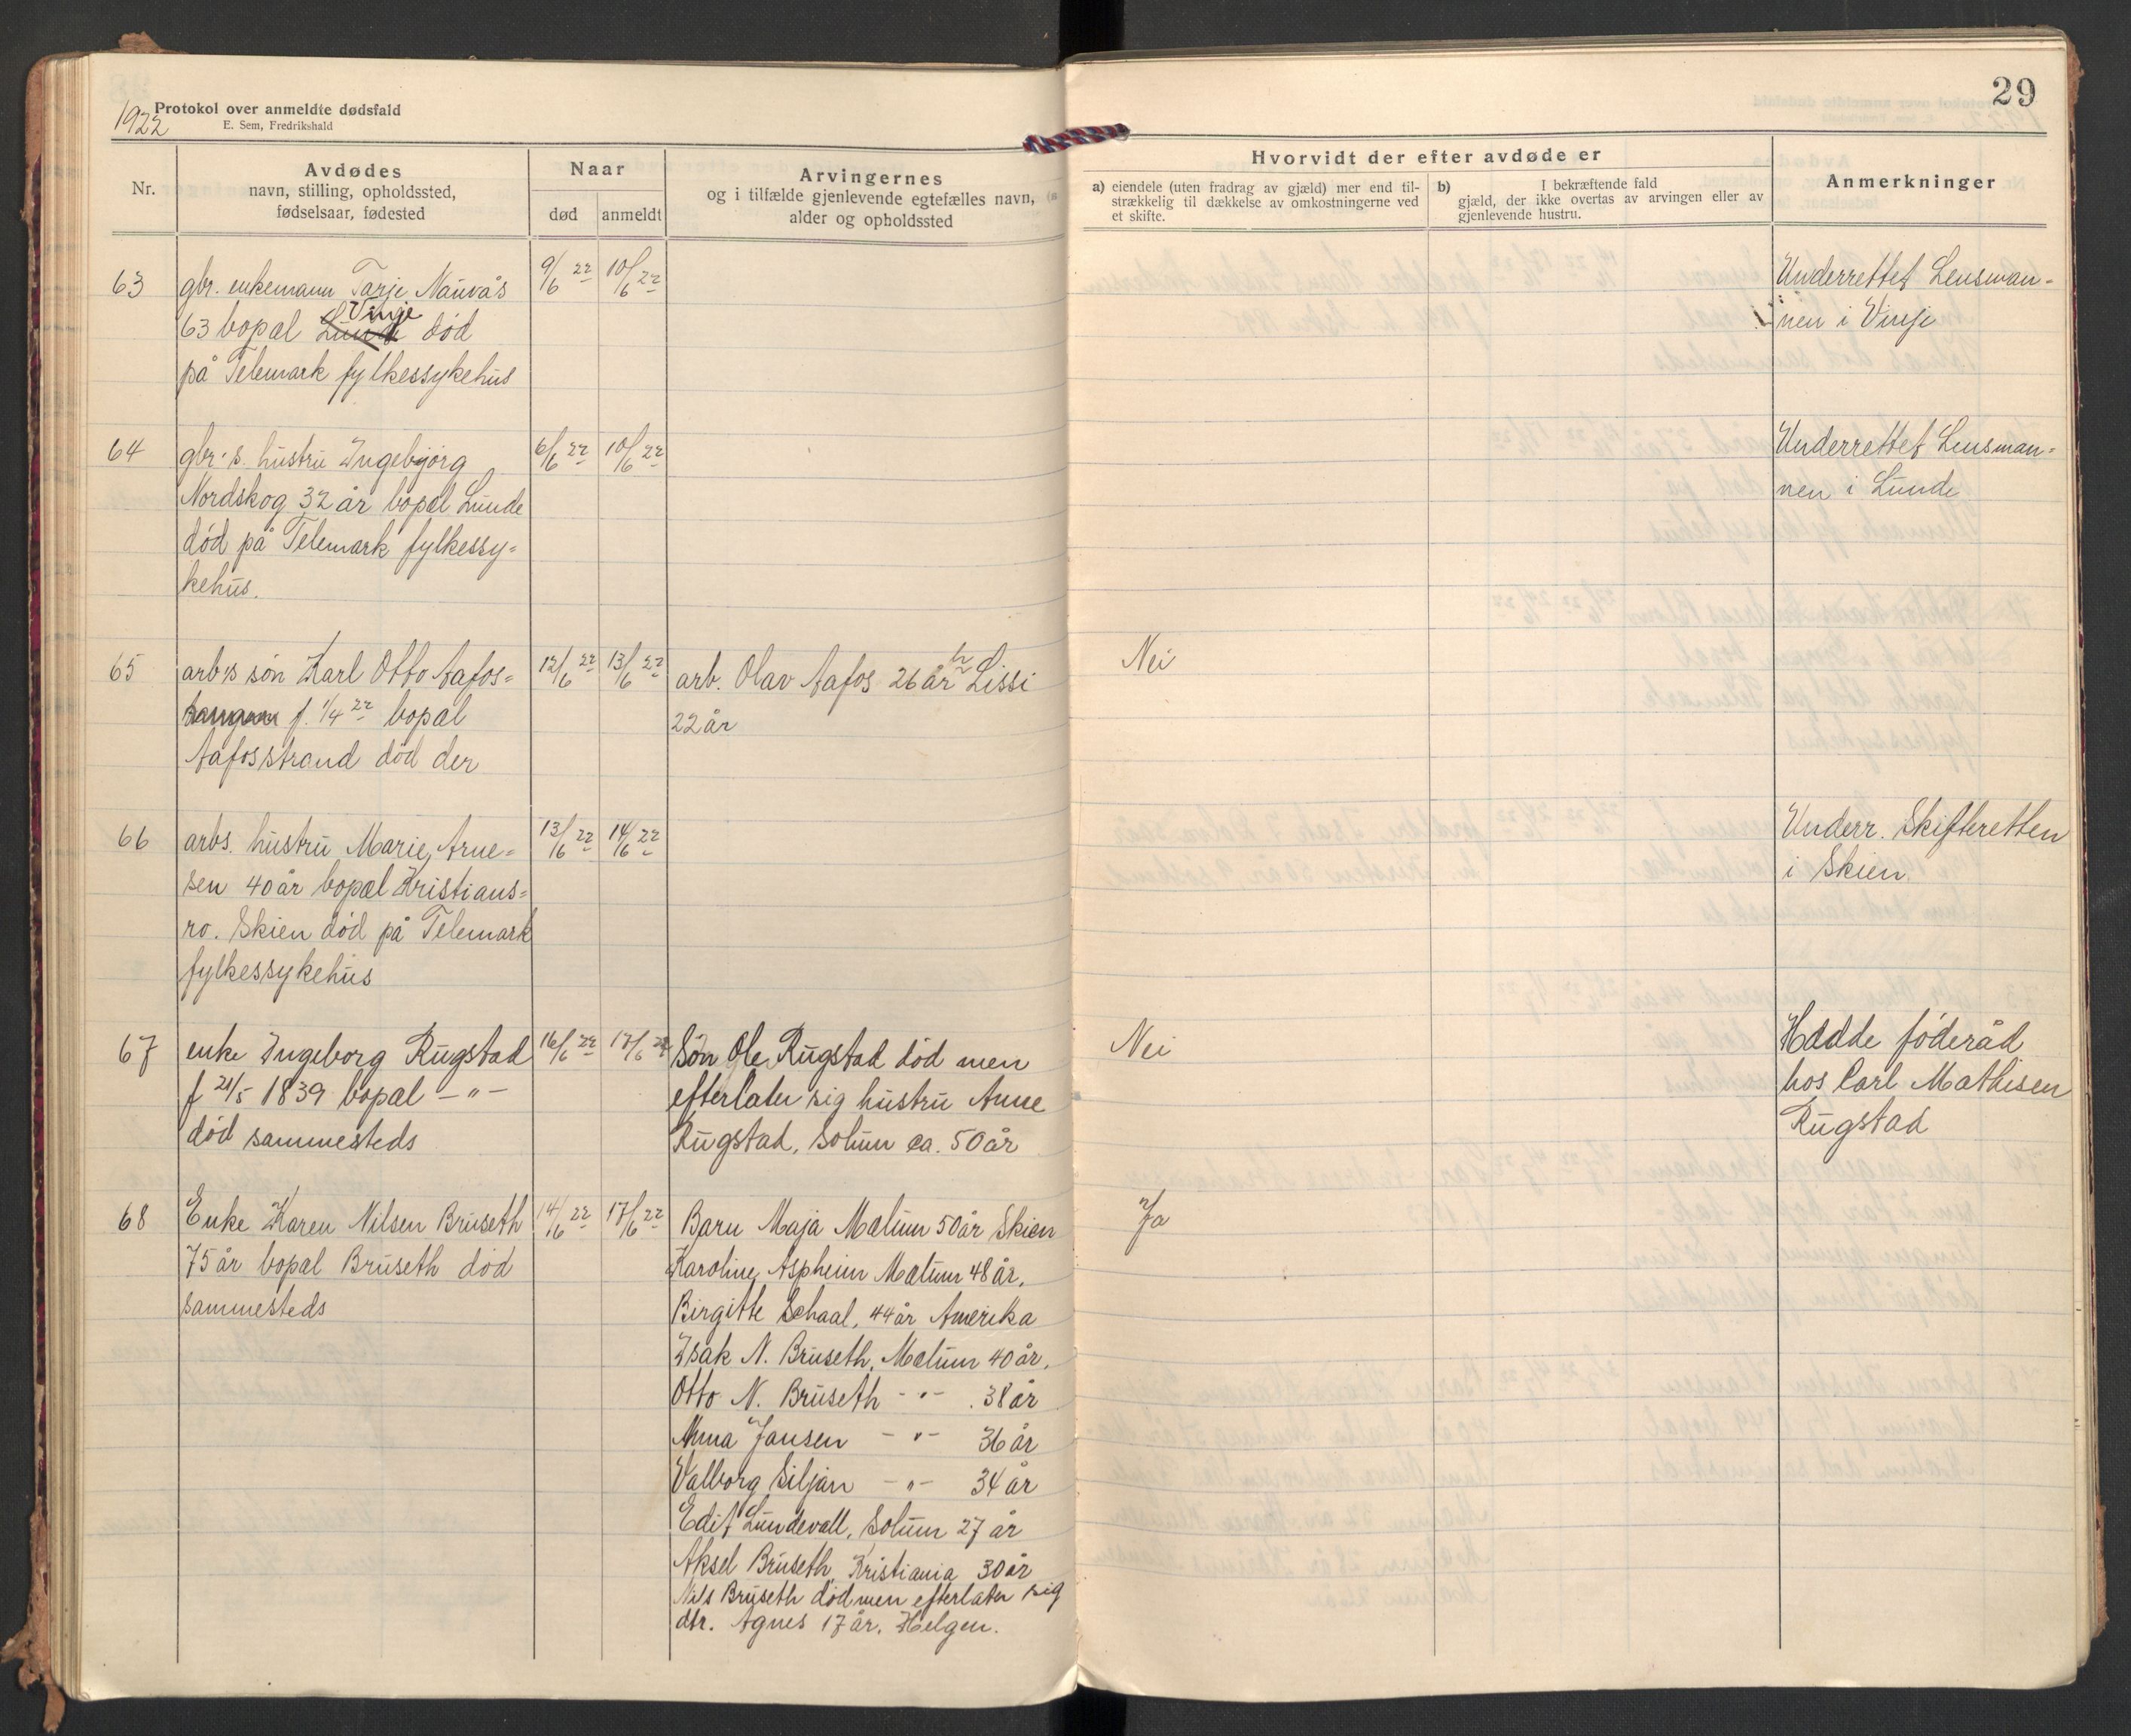 1922
Protokol over anmeldte dødsfald
E. Sem, Fredrikshald
29
Nr.
Avdødes
navn, stilling, opholdssted,
fødselsaar, fødested
Naar
død
anmeldt
Arvingernes
og i tilfælde gjenlevende egtefælles navn,
alder og opholdssted
Hvorvidt der efter avdøde er
a) eiendele (uten fradrag av gjæld) mer end til-
strækkelig til dækkelse av omkostningerne ved
et skifte.
b) I bekræftende fald
gjæld, der ikke overtas av arvingen eller av
gjenlevende hustru.
Anmerkninger
63
gbr. enkemann Tarje Nauvås
63 bopæl Lunde Vinje død
på Telemark fylkessykehus
9/6 22
10/6 22
Underrettet Lensman-
nen i Vinje
64
gbr's. hustru Ingebjørg
Nordskog 32 år bopæl Lunde
død på Telemark fylkessy-
kehus.
6/6 22
10/6 22
Underrettet Lensman-
nen i Lunde
65
arb's søn Karl Otto Aafos-
f. 1/4 22 bopæl
Aafosstrand død der
12/6 22
13/6 22
arb. Olav Aafos 26 år h Lissi
22 år
Nei
66
arbs. hustru Marie Arne-
sen 40 år bopæl Kristians-
ro. Skien død på Telemark
fylkessykehus
13/6 22
14/6 22
Underr. Skifteretten
i Skien
67
enke Ingeborg Rugstad
f 21/5 1839 bopæl - " -
død sammesteds
16/6 22
17/6 22
Søn Ole Rugstad død men
efterlater sig hustru Anne
Rugstad, Solum ca. 50 år
Nei
Hadde føderåd
hos Carl Mathisen
Rugstad
68
Enke Karen Nilsen Bruseth
75 år bopæl Bruseth død
sammesteds
14/6 22
17/6 22
Barn Maja Mælum 50 år Skien
Karoline Aspheim Mælum 48 år.
Birgitte Schaal, 44 år Amerika
Isak N. Bruseth, Mælum 40 år.
Otto N. Bruseth - " - . 38 år
Anna Jansen - " - 36 år
Valborg Siljan - " - 34 år
Edit Lundevall, Solum 27 år
Aksel Bruseth, Kristiania 30 år
Nils Bruseth død men efterlater sig
dtr. Agnes 17 år. Helgen.
Ja